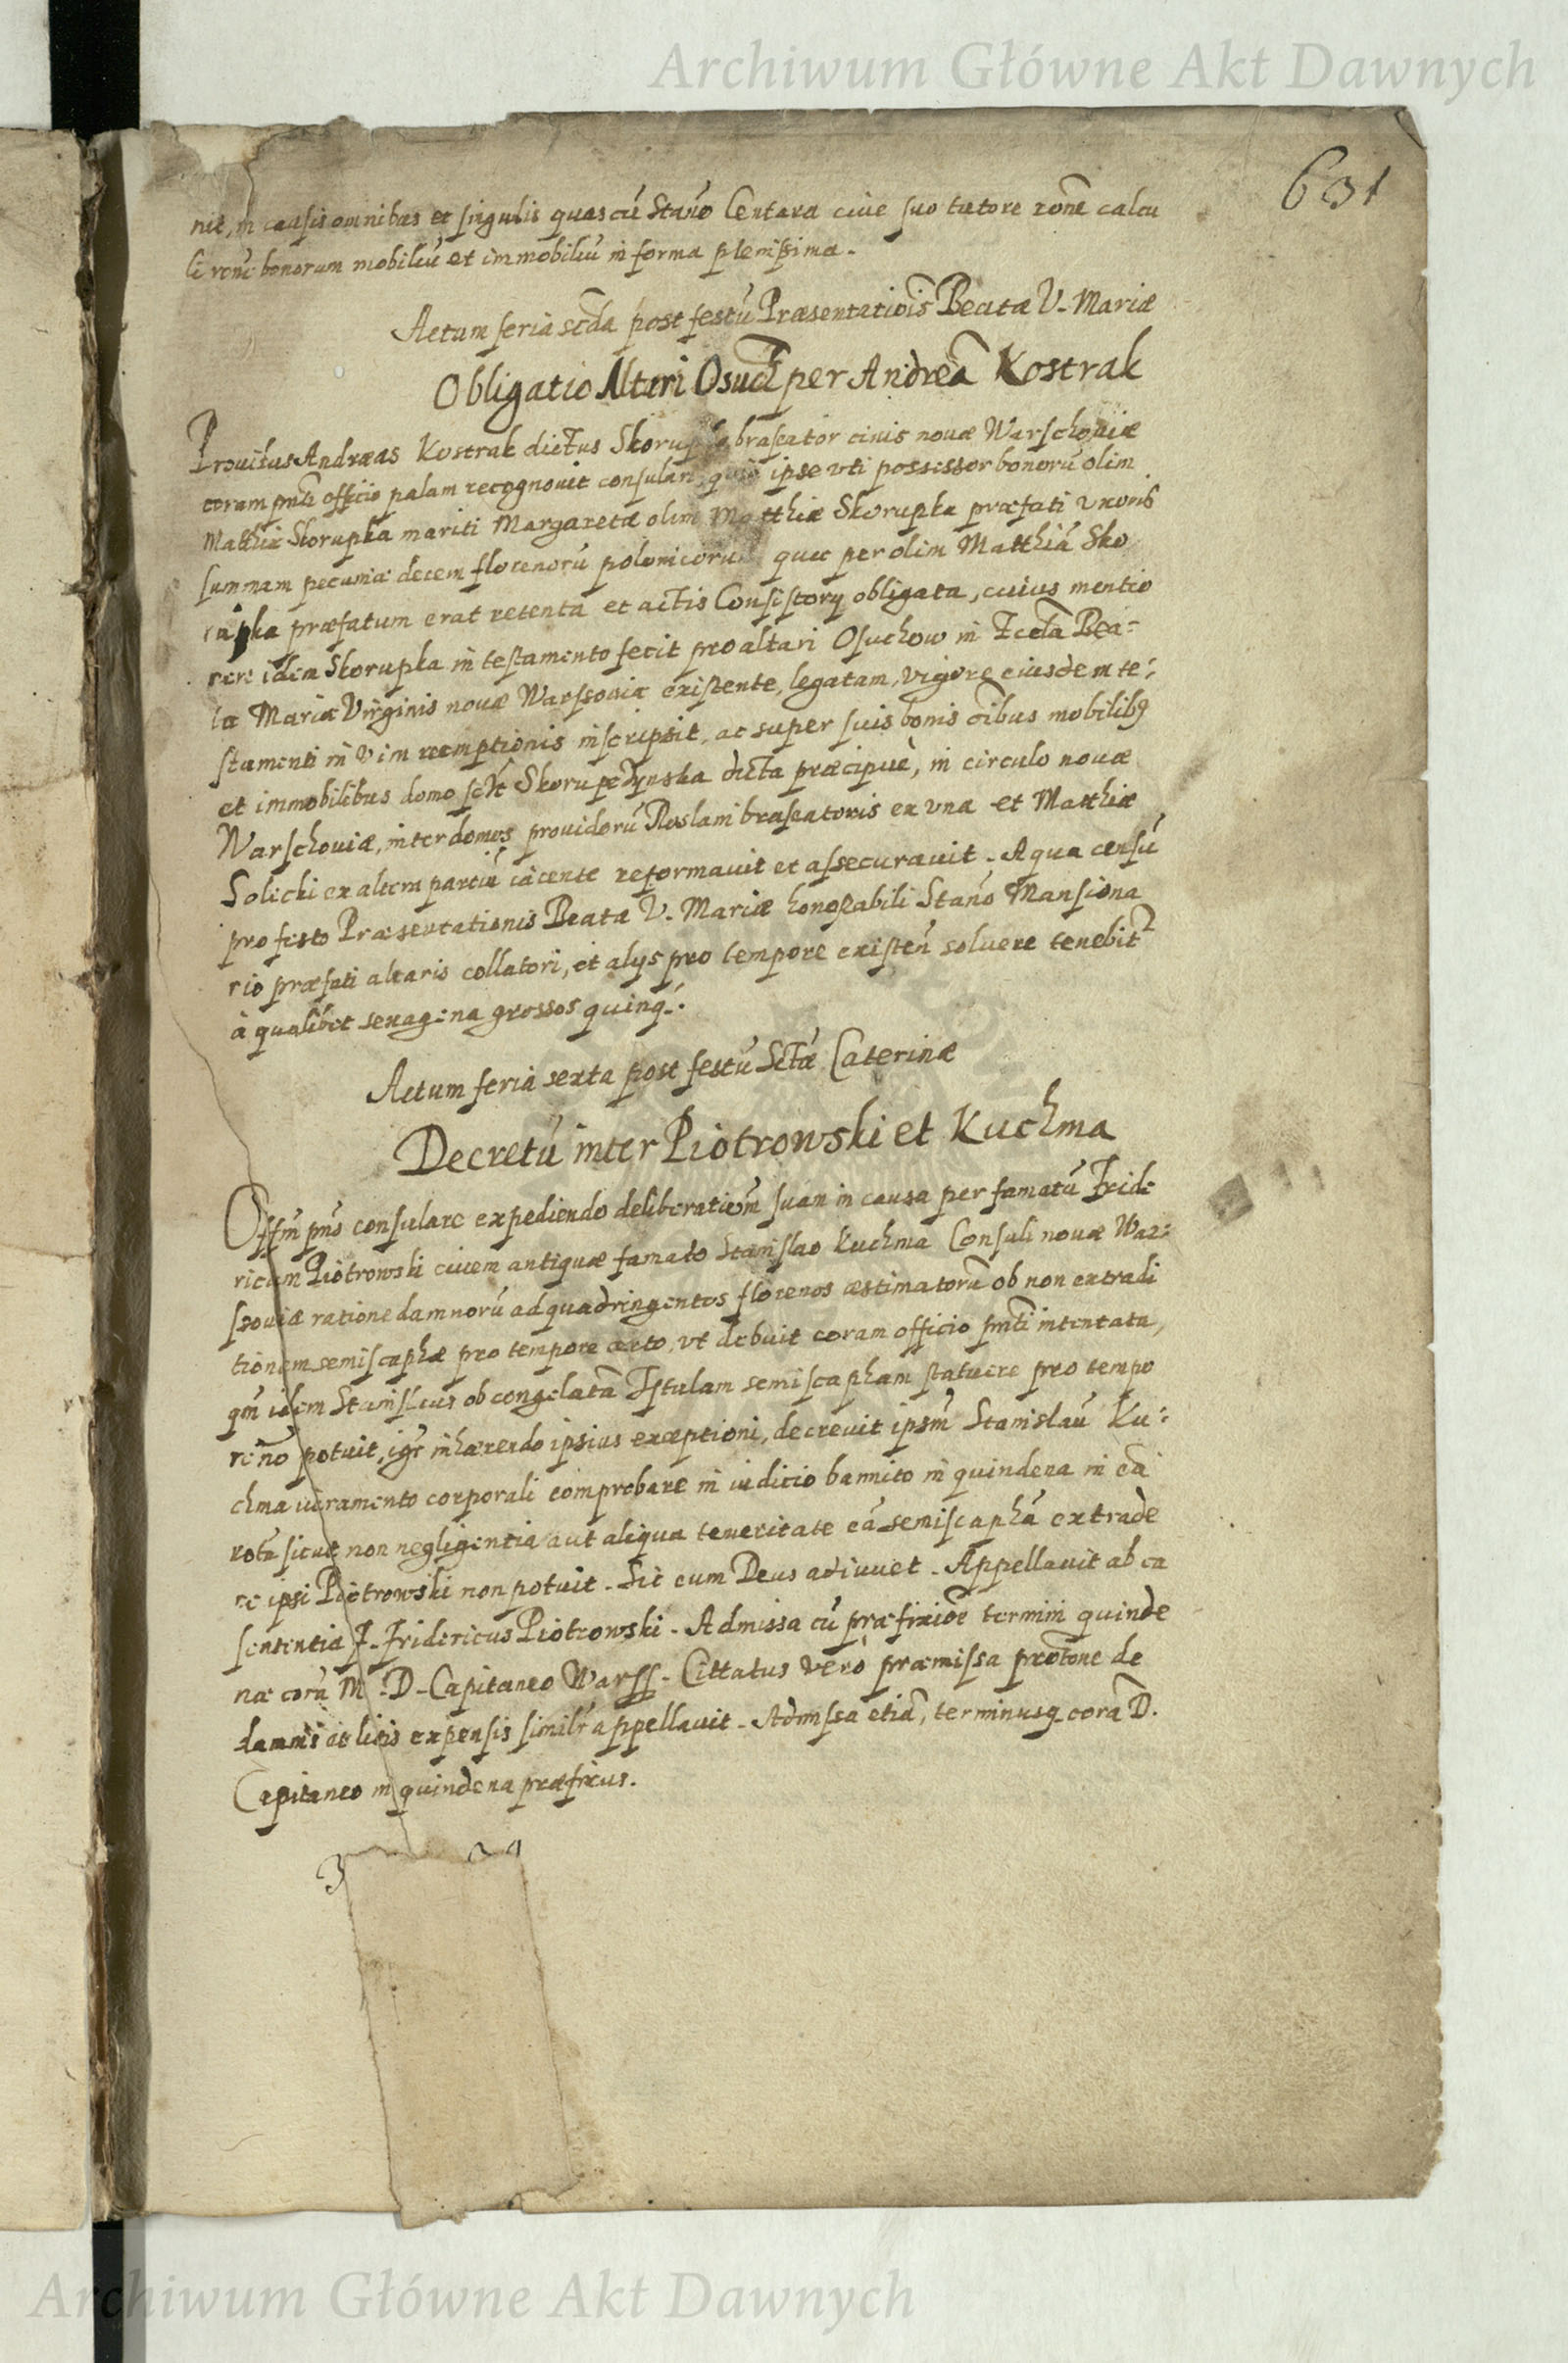 Archiwum Główne Akt Dawnych
631
nie, in causis omnibus et singulis quas cū Stan̄o Centara ciue suo tutore rōne calcu
li ron̄e bonorum mobiliū et immobiliū in forma plenissima.
Actum feria scd̄a post festū Præsentatiōis Beatæ V. Mariæ
Obligatio Altari Osuch per Andreā Kostrak
Prouitus Andræas Kostrak dictus Skorupka braseator ciuis nouæ Warschouiæ
coram pn̄ti officio palam recognouit consulari, quia ipse vti possessor bonorū olim
Matthiæ Skorupka mariti Margaretæ olim Matthiæ Skorupka præfati vxoris
summam pecuniæ decem florenorū polonicorum quæ per olim Matthiā Sko
rupka præfatum erat retenta et actis Consistorij obligata, cuius mentio
nem idem Skorupka in testamento fecit pro altari Osuchow in Eccl̄a Bea=
tæ Mariæ Virginis nouæ Warssouiæ existente, legatam, vigore eiusdem te=
stamenti in vim reemptionis inscripsit, ac super suis bonis ōibus mobilibꝰ
et immobilibus domo sc̄lt Skorupczynska dicta præcipuè, in circulo nouæ
Warschouiæ, inter domos prouidorū Roslani braseatoris ex vna et Matthiæ
Solicki ex altera partiū iacente reformauit et assecurauit. A qua censū
pro festo Præsentationis Beatæ V. Mariæ honorabili Stan̄o Mansiona
rio præfati altaris collatori, et alijs pro tempore existen̄ soluere tenebit᷑
à qualibet sexagena grossos quinq́.
Actum feria sexta post festū Sctǣ Caterinæ
Decretū inter Piotrowski et Kuchma
Offm̄ pn̄s consulare expediendo deliberatiōm suam in causa per famatū Fride
ricum Piotrowski ciuem antiquæ famato Stanislao Kuchma Consuli nouæ War=
ssouiæ ratione damnorū ad quadringentos florenos æstimatorū ob non extradi
tionem semiscaphæ pro tempore certo, vt debuit coram officio pn̄ti intentata,
qm̄ idem Stanislaus ob congelatā Istulam semiscapham statuere pro tempo
re nō potuit, igr̄ inhærendo ipsius exceptioni, decreuit ipsm̄ Stanislaū Ku=
chma iuramento corporali comprobare in iudicio bannito in quindena in eā
rotā sicut non negligentia aut aliqua temeritate eā semiscaphā extrade
re ipsi Piotrowski non potuit. Sic eum Deus adiuuet. Appellauit ab ea
sententia F. Fridericus Piotrowski. Admissa cū præfixiōe termini quinde
næ corā M. D. Capitaneo Warss. Cittatus verò præmissa protōne de
damnis ac litis expensis similr̄ appellauit. Admissa etiā, terminusq́ corā D.
Capitaneo in quindena præfixus.
Archiwum Główne Akt Dawnych